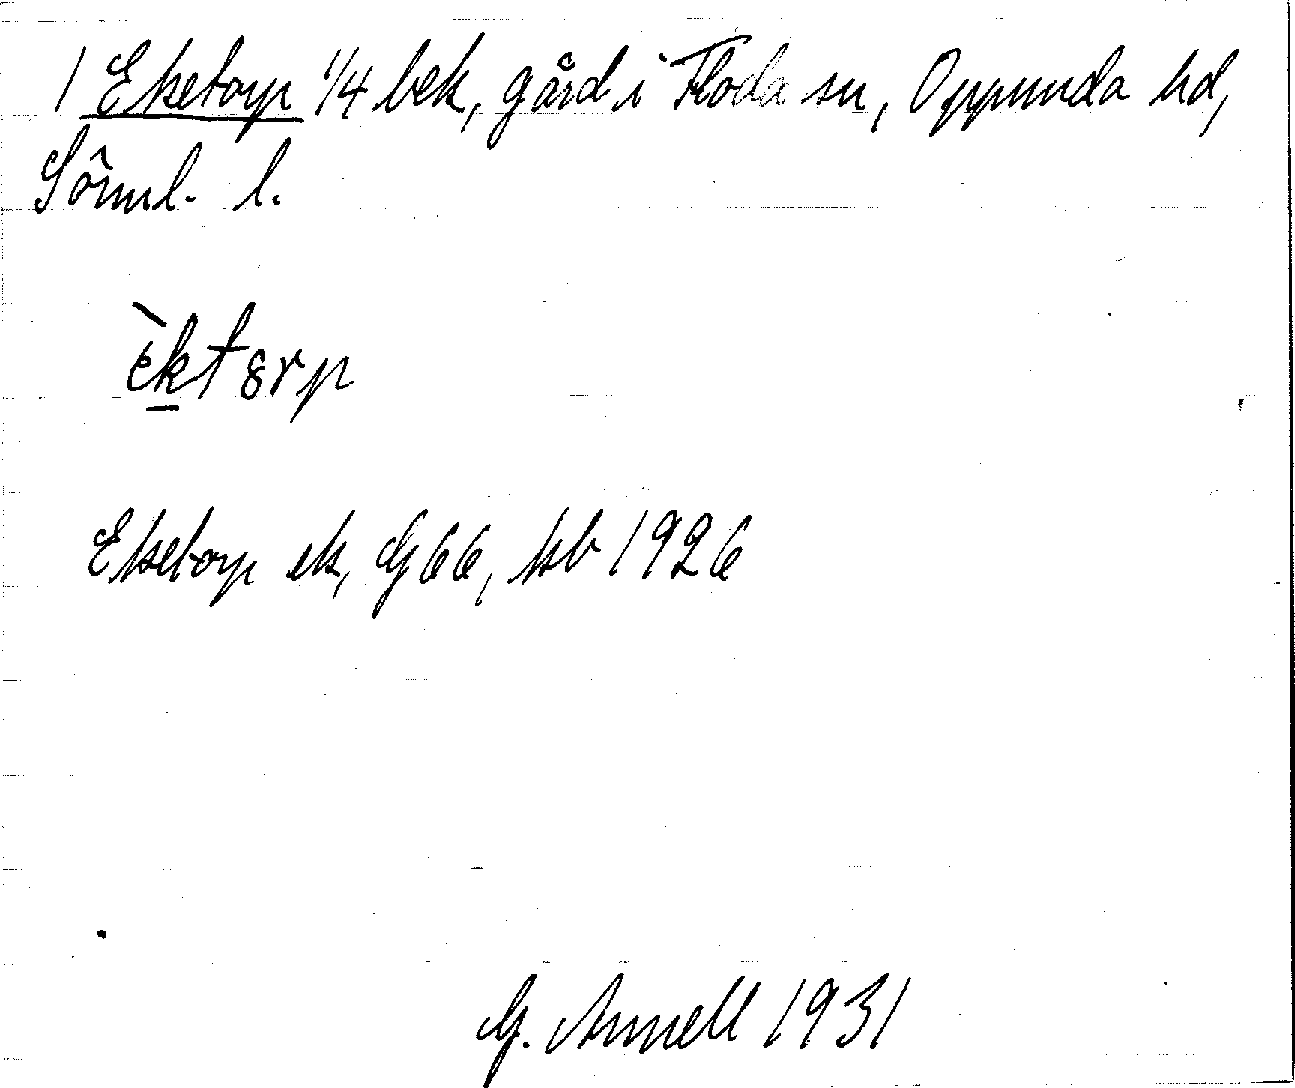 1 Eketorp 1/4 bek, gård i Floda sn, Oppunda hd,
Söml. l.
èktɞrp
Eketorp ek, G66, kb 1926
G. Annell 1931